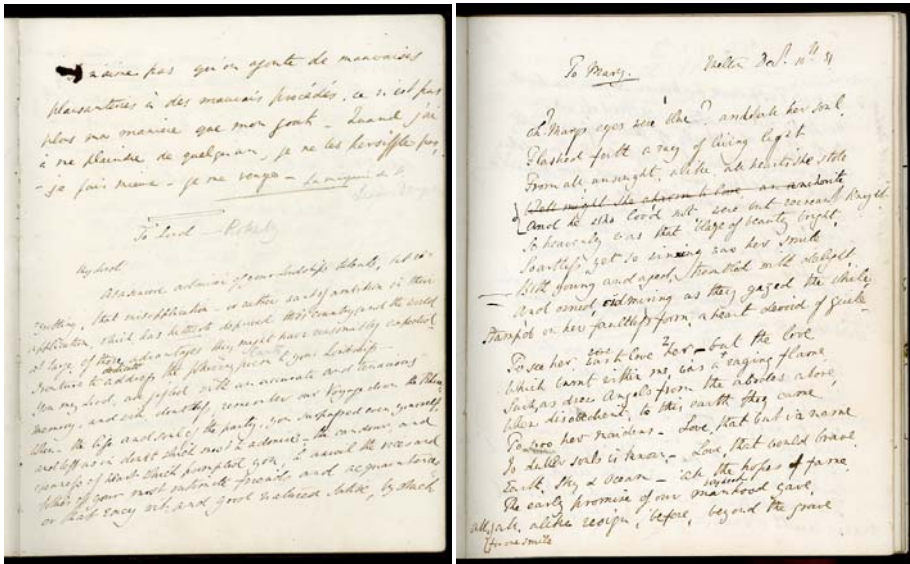 n'aime pas qu'on ajoute de mauvaises
plaisanteries à des mauvais procédés, ce n'est pas
plus ma maniere que mon gout - Quand j'ai
à me plaindre de quelqu'un, je ne les persiffle pas,
- je fais mieux - je me venge -
To Lord -
My Lord
As a sincere admirer of your Lordship's talents,
that misapplication - or rather want of ambition in their
application, which has hitherto deprived this country and the world
at large of those advantages they might have reasonably expected
venture to address the following poem to your Lordship -
You my Lord, are gifted with an accurate and tenacious
memory, and will doubtless, remember our Voyage down the
then - the life and soul of the party, you surpassed even yourself
and left us in doubt which most to admire - the candour and
openness of heart which prompted you, to unveil the vices and
follies of your most intimate friends and acquaintances
or that racy wit and good natured satire, by which
To Mary.
Dec. 10th 31
Oh! Mary's eyes were blue? and while her soul
Flashed forth a ray of living light
From all, unsought, alike, all hearts she stole
Well might she chasen to love an anchorite
And he who lov'd not, were but recreant Knight
So heavenly was that blaze of beauty bright
Spotless, yet so winning was her smile
Both young and aged, breathed mild delight
And owned, admiring as they gazed the while
Stamped on her faultless form, a heart devoid of guile
To see her, was to love her - but the love
Which burnt within me, was a raging flame
Such, as drew Angels from the abodes above,
When disobedient, to this earth they came
To woo her maidens - Love, that but in name
To duller souls is known - Love, that would brave
Earth, sky & ocean - the hopes of fame
The early promise of our manhood gave,
all, all, alike resign, before, beyond the grave
for one smile